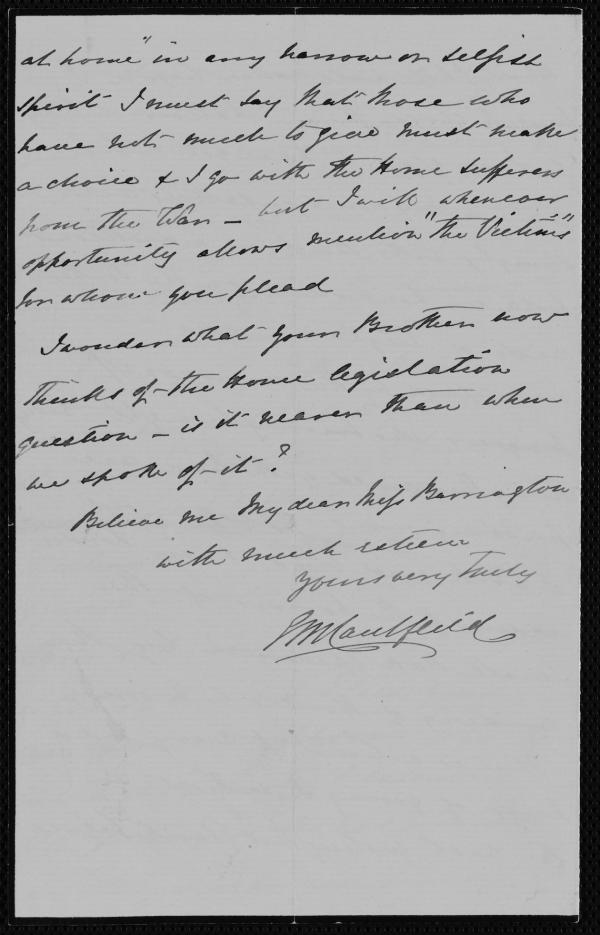 at home" in any narrow or selfish
spirit I must say that those who
have not much to give must make
a choice & I go with the Home sufferers
from the War – but I will whenever
opportunity allows mention "the Victims"
for whom you plead
I wonder what your Brother now
thinks of the Home legislation
question – is it nearer than when
we spoke of it?
Believe me My dear Miss Barrington
with much esteem
yours very truly
Caulfeild